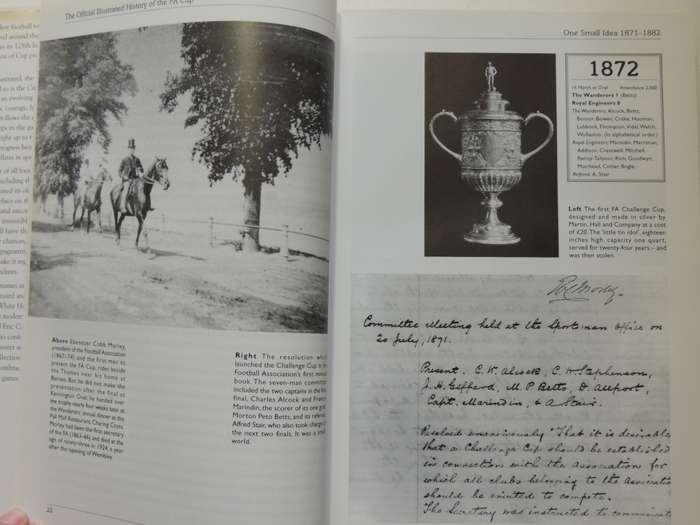 The Official Illustrated History of the FA Cup
Above Ebenezer Cobb Morley,
president of the Football Association
(1867–74) and the first man to
present the FA Cup, rides beside
the Thames near his home at
Barnes. But he did not make its
presentation after the final at
Kennington Oval; he handed over
the trophy nearly four weeks later at
the Wanderers' annual dinner at the
Pall Mall Restaurant, Charing Cross.
Morley had been the first secretary
of the FA (1863–66) and died at the
age of ninety-three in 1924, a year
after the opening of Wembley.
Right The resolution which
launched the Challenge Cup in
Football Association's first minute
book. The seven-man committee
included the two captains in the
final, Charles Alcock and Francis
Marindin, the scorer of its one goal
Morton Peto Betts, and its referee
Alfred Stair, who also took charge of
the next two finals. It was a small
world.
22
One Small Idea 1871–1882
1872
16 March at Oval Attendance 2,000
The Wanderers 1 (Betts)
Royal Engineers 0
The Wanderers: Alcock, Betts,
Bonsor, Bowen, Crake, Hooman,
Lubbock, Thompson, Vidal, Welch,
Wollaston. (In alphabetical order.)
Royal Engineers: Marindin, Merriman,
Addison, Creswell, Mitchell,
Renny-Tailyour, Rich, Goodwyn,
Muirhead, Cotter, Bogle.
Referee: A. Stair
Left The first FA Challenge Cup,
designed and made in silver by
Martin, Hall and Company at a cost
of £20. The 'little tin idol', eighteen
inches high, capacity one quart,
served for twenty-four years – and
was then stolen.
Committee Meeting held at the Sportsman office on
20 July, 1871.
Present. C. W. Alcock, C. W. Stephenson,
J. H. Giffard, M. P. Betts, D. Allport,
Capt. Marindin, & A. Stair.
Resolved unanimously "That it is desirable
that a Challenge Cup should be established
in connection with the Association for
which all clubs belonging to the Association
should be invited to compete.
The Secretary was instructed to communicate